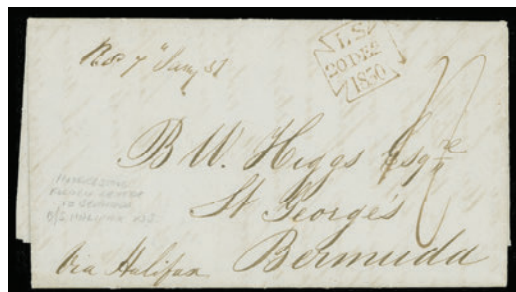 Rec 7" Jany 51
L S
20 DE 2
1850
B W. Higgs Esqre
St George's
Bermuda
via Halifax